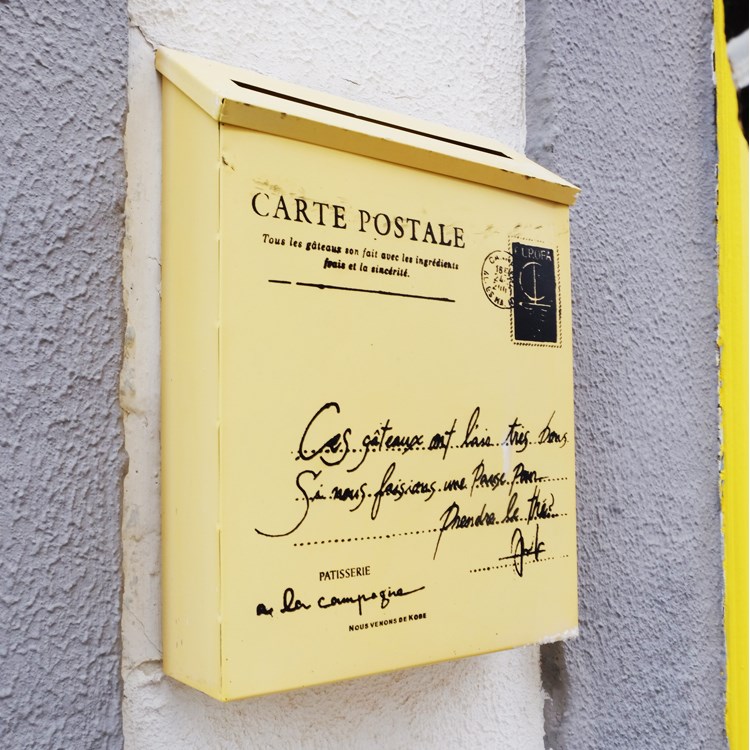 CARTE POSTALE
Tous les gâteaux son fait avec les ingrédients
frais et la sincérité.
EUROPA
Ces gâteaux ont l'air très bons
Si nous faisions une Pause Pour
Prendre le thé?
PATISSERIE
a la campagne
NOUS VENONS DE KOBE